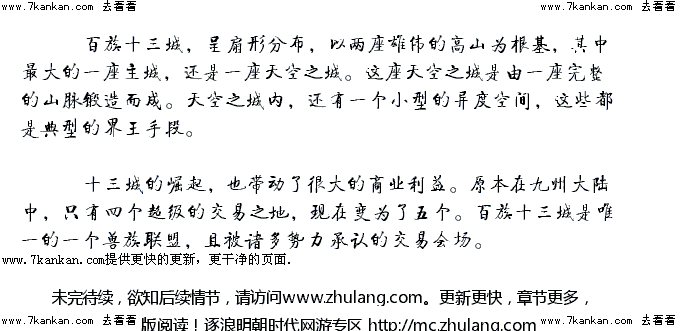 www.7kankan.com 去看看 www.7kankan.com 去看看
百族十三城，呈扇形分布，以两座雄伟的高山为根基，其中
最大的一座主城，还是一座天空之城。这座天空之城是由一座完整
的山脉锻造而成。天空之城内，还有一个小型的异度空间，这些都
是典型的界王手段。
十三城的崛起，也带动了很大的商业利益。原本在九州大陆
中，只有四个超级的交易之地，现在变为了五个。百族十三城是唯
一的一个兽族联盟，且被诸多势力承认的交易会场。
www.7kankan.com提供更快的更新，更干净的页面.
未完待续，欲知后续情节，请访问www.zhulang.com。更新更快，章节更多，
www.7kankan.com 去看看 版阅读！逐浪明朝时代网游专区 http://mc.zhulang.com www.7kankan.com 去看看